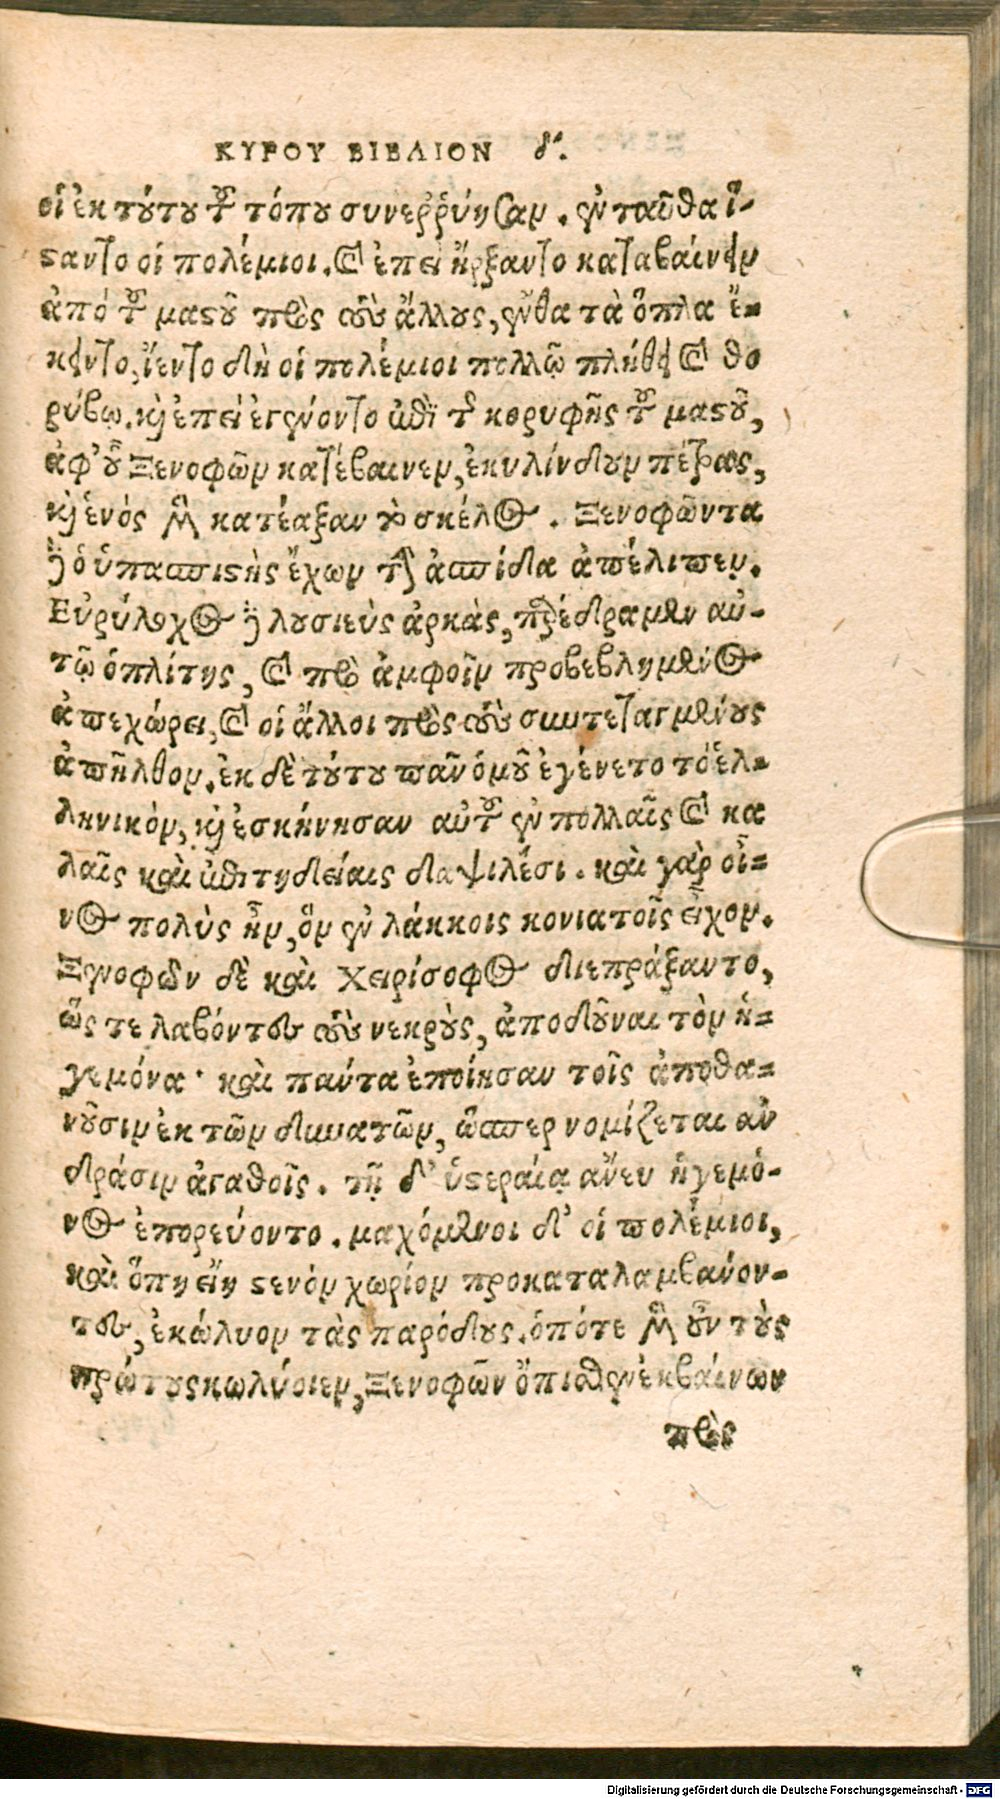 ΚΥΡΟΥ ΒΙΒΛΙΟΝ δ΄.
οἱ ἐκ τούτου τοῦ τόπου συνεῤῥύησαν. ἐνταῦθα ἵ-
σαντο οἱ πολέμιοι. καὶ ἐπεὶ ἤρξαντο καταβαίνειν
ἀπό τοῦ μαστοῦ πρὸς τοὺς ἄλλους, ἔνθα τὰ ὅπλα ἔ-
κειντο, ἵεντο δὴ οἱ πολέμιοι πολλῷ πλήθει καὶ θο
ρύβῳ. καὶ ἐπεὶ ἐγένοντο ἐπὶ τῆς κορυφῆς τοῦ μαστοῦ,
ἀφ' οὗ Ξενοφῶν κατέβαινεν, ἐκυλίνδουν πέτρας,
καὶ ἑνὸς μὲν κατέαξαν τὸ σκέλος. Ξενοφῶντα
δὲ ὁ ὑπασπιστὴς ἔχων τὴν ἀσπίδα ἀπέλιπεν.
Εὐρύλοχος δὲ λουσιεὺς ἀρκὰς, προσέδραμεν αὐ-
τῷ ὁπλίτης, καὶ πρὸ ἀμφοῖν προβεβλημένος
ἀπεχώρει, καὶ οἱ ἄλλοι πρὸς τοὺς συντεταγμένους
ἀπῆλθον. ἐκ δὲ τούτου πᾶν ὁμοῦ ἐγένετο τὸ ἑλ-
ληνικὸν, καὶ ἐσκήνησαν αὐτοῦ ἐν πολλαῖς καὶ κα
λαῖς καὶ ἐπιτηδείαις δαψιλέσι. καὶ γὰρ οἶ-
νος πολὺς ἦν, ὃν ἐν λάκκοις κονιατοῖς εἶχον.
Ξενοφῶν δὲ καὶ Χειρίσοφος διεπράξαντο,
ὥς τε λαβόντες τοὺς νεκροὺς, ἀποδοῦναι τὸν ἡ-
γεμόνα· καὶ πάντα ἐποίησαν τοῖς ἀποθα-
νοῦσιν ἐκ τῶν δυνατῶν, ὥσπερ νομίζεται ἀν
δράσιν ἀγαθοῖς. τῇ δ' ὑστεραίᾳ ἄνευ ἡγεμό-
νος ἐπορεύοντο. μαχόμενοι δ' οἱ πολέμιοι,
καὶ ὅπη εἴη στενὸν χωρίον προκαταλαμβάνον-
τες, ἐκώλυον τὰς παρόδους. ὁπότε μὲν οὖν τοὺς
πρώτους κωλύοιεν, Ξενοφῶν ὄπισθεν ἐκβαίνων
πρὸς
Digitalisierung gefördert durch die Deutsche Forschungsgemeinschaft - DFG